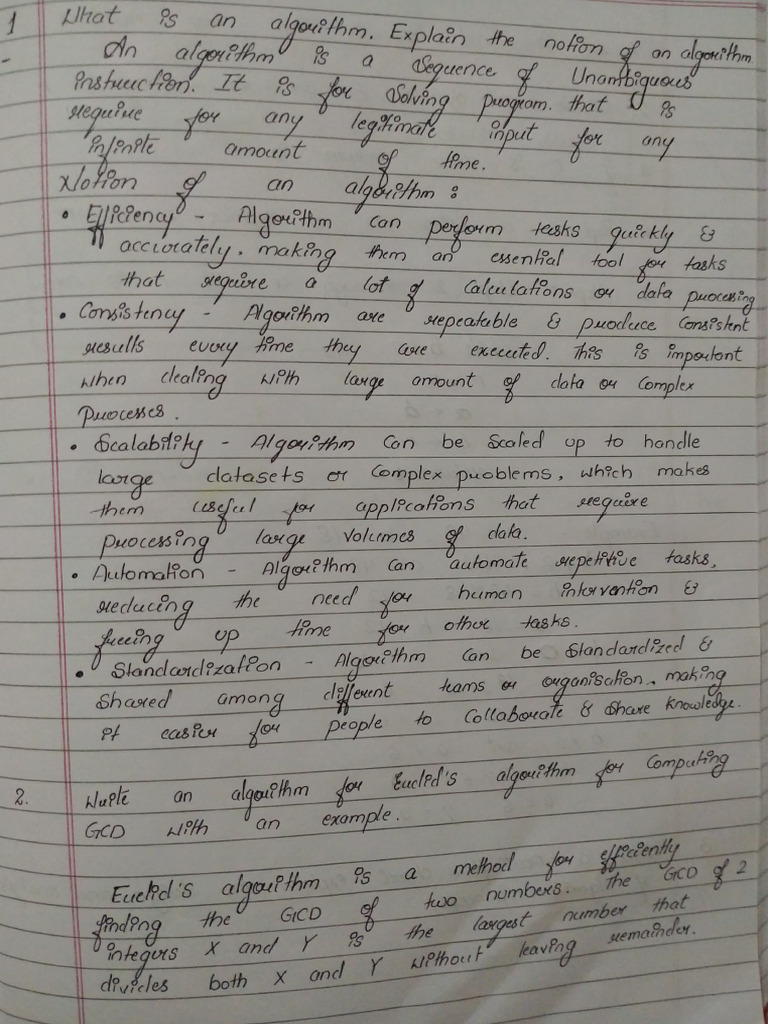 1 What is an algorithm. Explain the notion of an algorithm.
- An algorithm is a Sequence of Unambiguous
instruction. It is for Solving program. that is
require for any legitimate input for any
infinite amount of time.
Notion of an algorithm :
• Efficiency - Algorithm can perform tasks quickly &
accurately. making them an essential tool for tasks
that require a lot of Calculations or data processing
• Consistency - Algorithm are repeatable & produce Consistent
results every time they are executed. This is important
when dealing with large amount of data or Complex
Processes.
• Scalability - Algorithm can be scaled up to handle
large datasets or Complex problems, which makes
them useful for applications that require
processing large volumes of data.
• Automation - Algorithm can automate repetitive tasks,
reducing the need for human intervention &
freeing up time for other tasks.
• Standardization - Algorithm can be Standardized &
Shared among different teams or organisation. making
it easier for people to Collaborate & Share knowledge.
2. Write an algorithm for Euclid's algorithm for Computing
GCD with an example.
Euclid's algorithm is a method for efficiently
finding the GCD of two numbers. The GCD of 2
integers X and Y is the largest number that
divides both X and Y without leaving remainder.